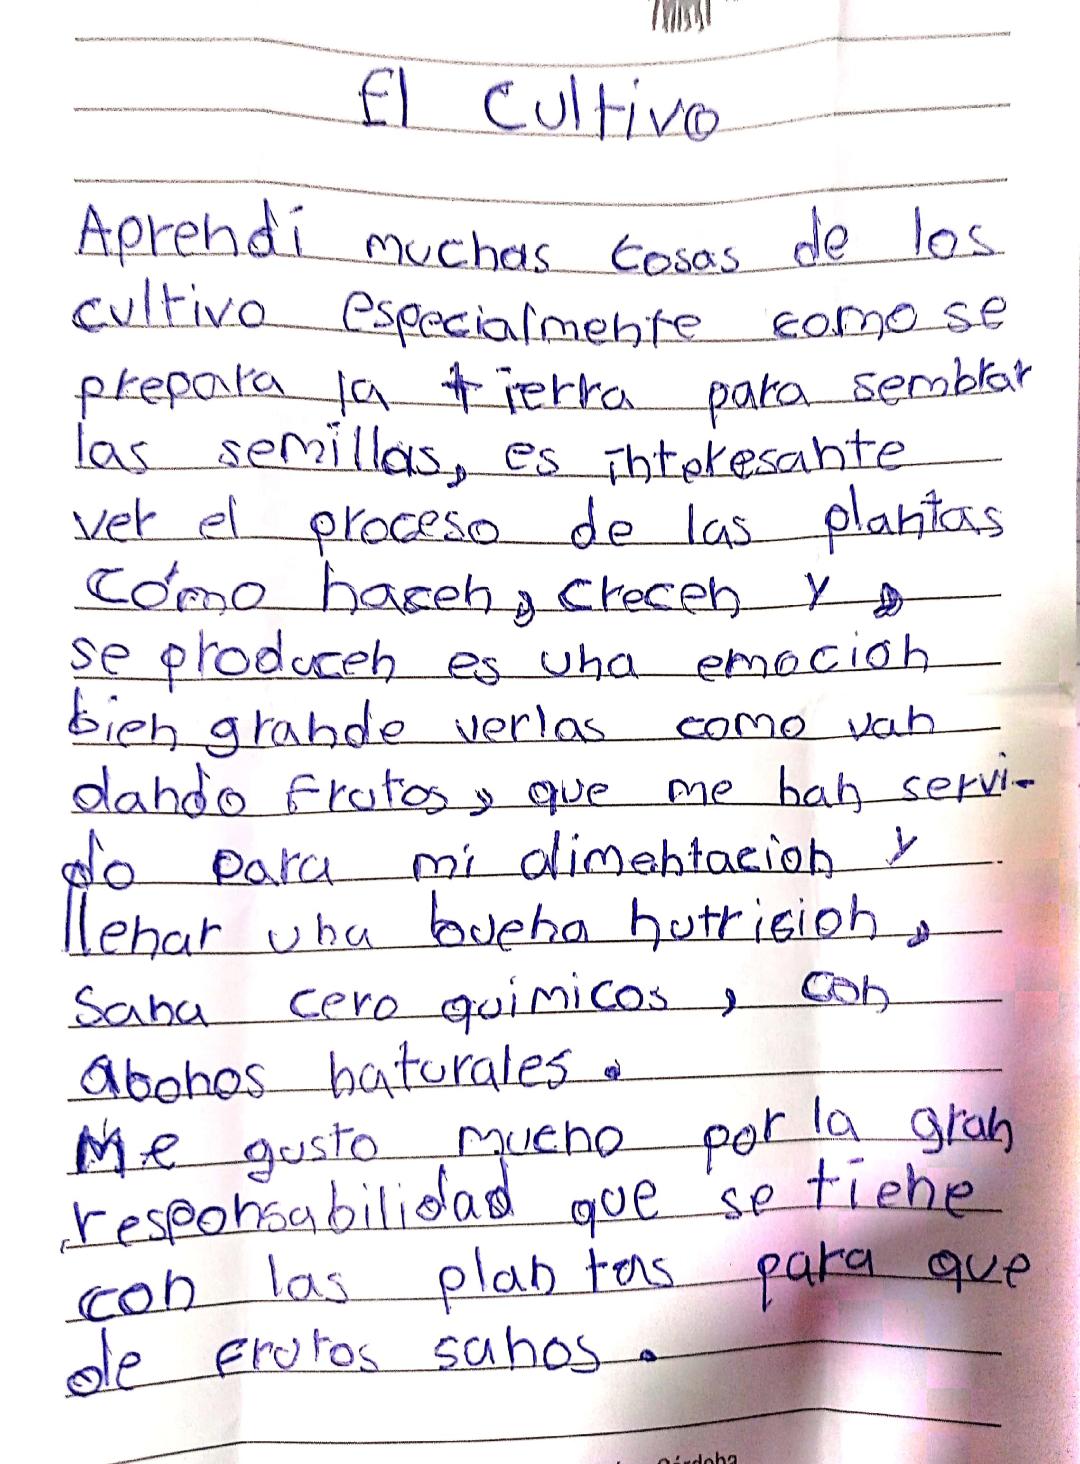 El Cultivo
Aprendí muchas cosas de los
cultivo especialmente como se
prepara la tierra para sembrar
las semillas, es interesante
ver el proceso de las plantas
Cómo nacen, crecen y
se producen es una emoción
bien grande verlas como van
dando frutos, que me han servi-
do para mi alimentacion y
llenar una buena nutricion,
Sana cero quimicos, con
abonos naturales.
Me gusto mucho por la gran
responsabilidad que se tiene
con las plantas para que
de frutos sanos.